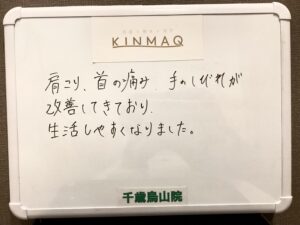 KINMAQ
肩こり、首の痛み、手のしびれが
改善してきており、
生活しやすくなりました。
千歳烏山院